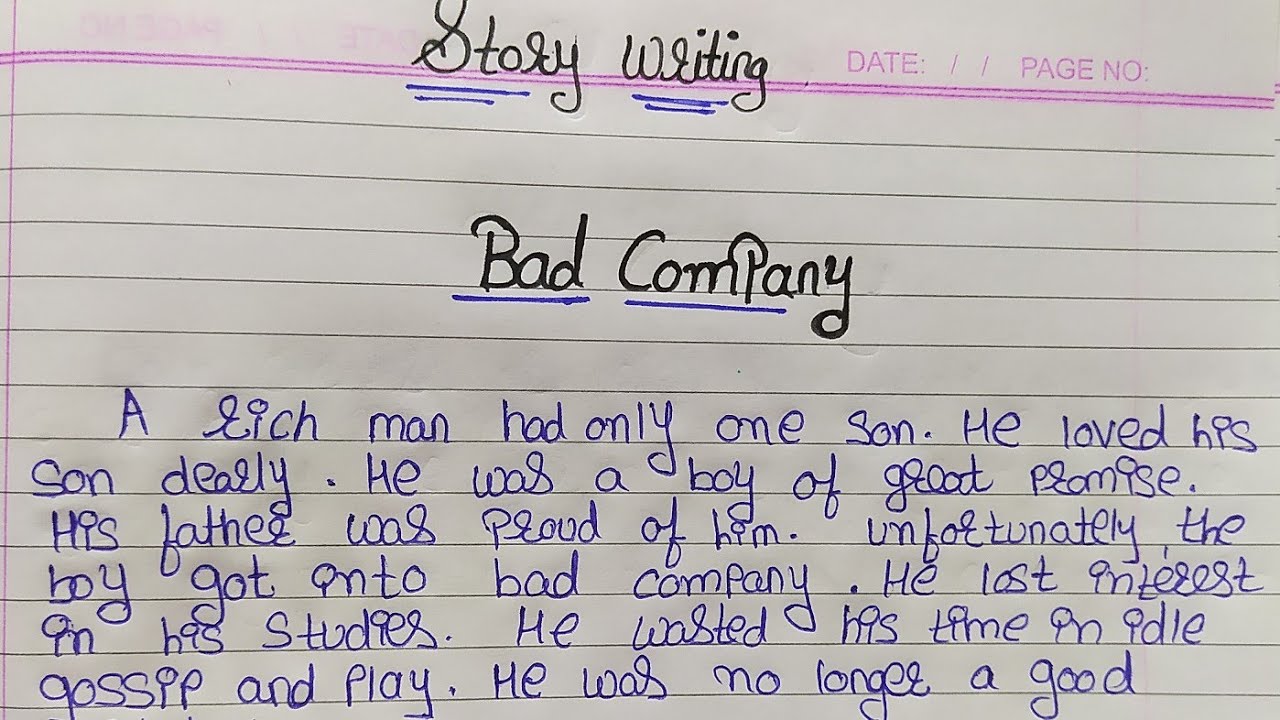 Story Writing
DATE: / / PAGE NO:
Bad Company
A rich man had only one son. He loved his
son dearly. He was a boy of great promise.
His father was proud of him. Unfortunately, the
boy got into bad company. He lost interest
in his studies. He wasted his time in idle
gossip and play. He was no longer a good